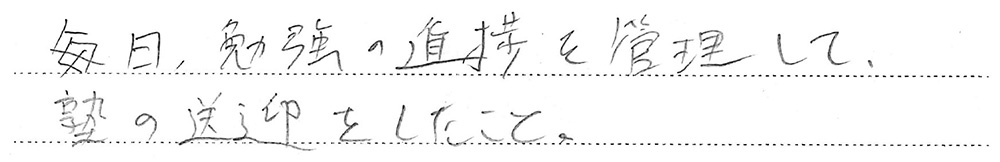 毎日、勉強の進捗を管理して、
塾の送迎をしたこと。